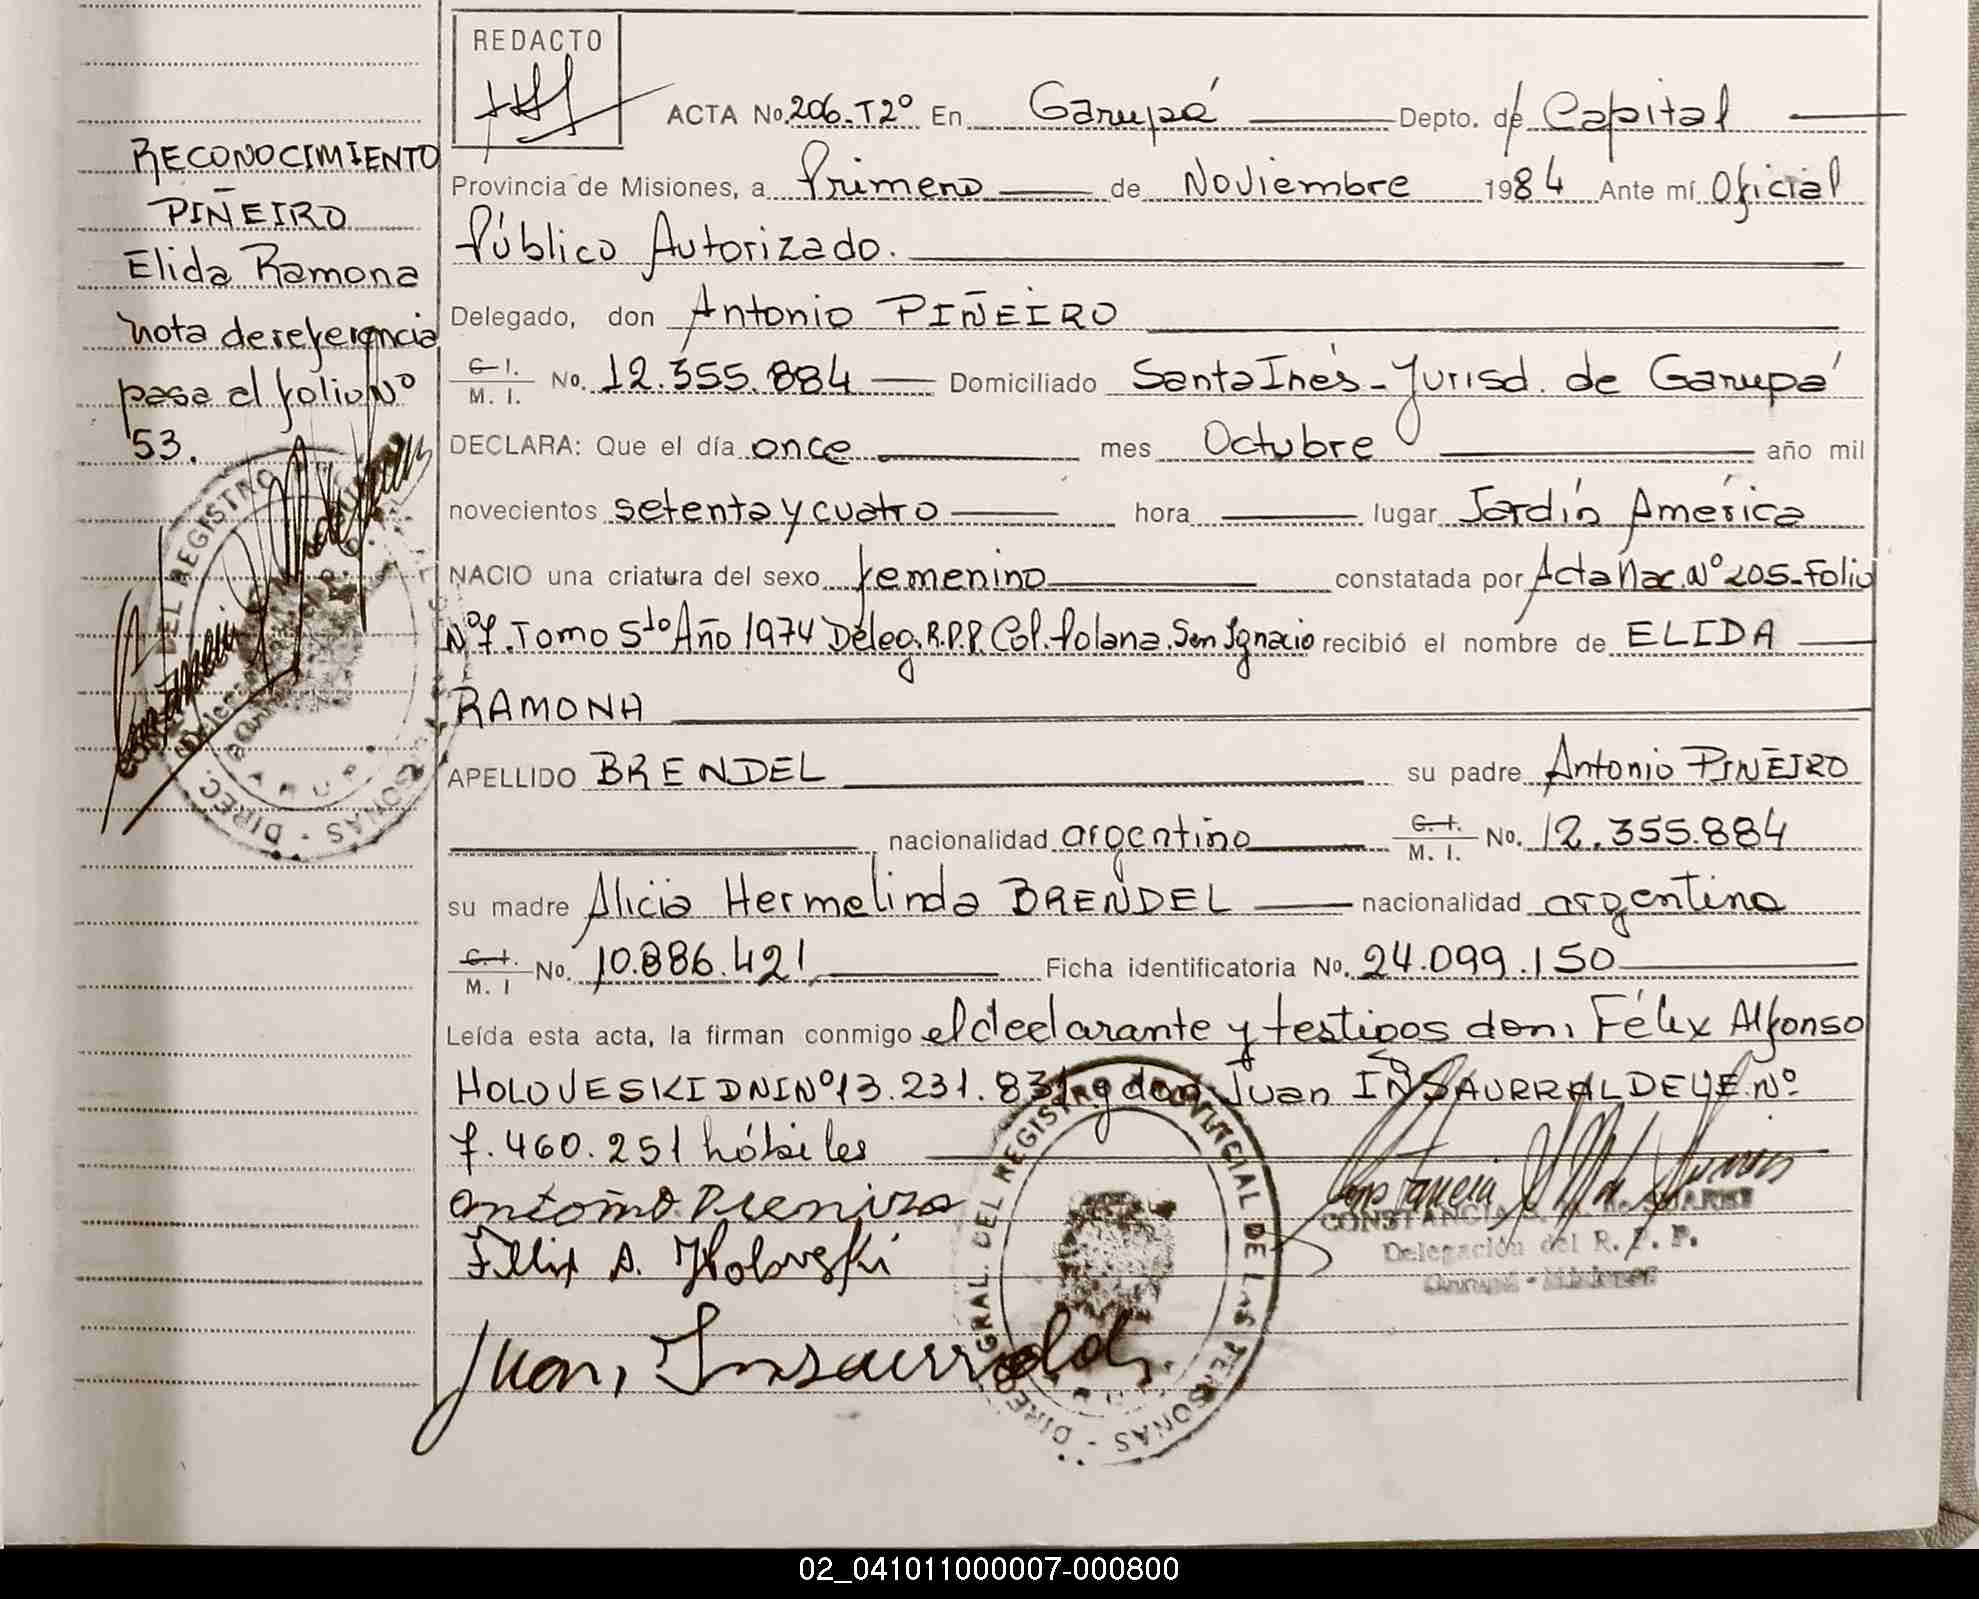 REDACTO
ACTA No. 206-T2º En Garupá Depto. de Capital
RECONOCIMIENTO
PIÑEIRO
Elida Ramona
nota de referencia
pasa al folio Nº
53.
Provincia de Misiones, a Primero de Noviembre 1984 Ante mí Oficial
Público Autorizado.
Delegado, don Antonio PIÑEIRO
C. I. M. I. No. 12.355.884 Domiciliado Santa Inés - Jurisd. de Garupá
DECLARA: Que el día once mes Octubre año mil
novecientos setenta y cuatro hora lugar Jardín América
NACIO una criatura del sexo femenino constatada por Acta Nac. Nº 205-Folio
Nº 7. Tomo 5to Año 1974 Deleg. R.P.P. Col. Polana. San Ignacio recibió el nombre de ELIDA
RAMONA
APELLIDO BRENDEL su padre Antonio PIÑEIRO
nacionalidad argentino C. I. M. I. No. 12.355.884
su madre Alicia Hermelinda BRENDEL nacionalidad argentina
C. I. M. I No. 10.886.421 Ficha identificatoria No. 24.099.150
Leída esta acta, la firman conmigo el declarante y testigos don: Félix Alfonso
HOLOVESKI DNI Nº 13.231.831 y don Juan INSAURRALDE LE. Nº
7.460.251 hábiles
Felix A. Holoveski
Juan, Insaurralde
CONSTANCIA DE SUAREZ
Delegación del R. P. P.
Garupá - Misiones
DIREC. GRAL. DEL REGISTRO PROVINCIAL DE LAS PERSONAS
02_041011000007-000800